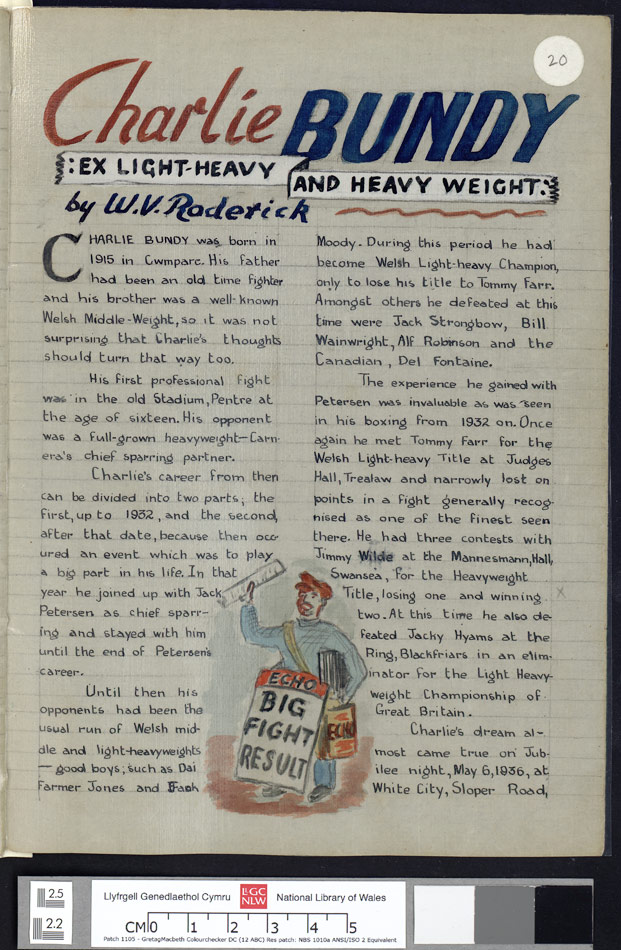 20
Charlie BUNDY
:EX LIGHT-HEAVY
AND HEAVY WEIGHT:
by W.V. Roderick
CHARLIE BUNDY was born in
1915 in Cwmparc. His father
had been an old time fighter
and his brother was a well-known
Welsh Middle-Weight, so it was not
surprising that Charlie's thoughts
should turn that way too.
His first professional fight
was in the old Stadium, Pentre at
the age of sixteen. His opponent
was a full-grown heavyweight—Carn-
era's chief sparring partner.
Charlie's career from then
can be divided into two parts; the
first, up to 1932, and the second,
after that date, because then occ-
ured an event which was to play
a big part in his life. In that
year he joined up with Jack
Petersen as chief sparr-
ing and stayed with him
until the end of Petersen's
career.
Until then his
opponents had been the
usual run of Welsh mid-
dle and light-heavyweights
— good boys, such as Dai
Farmer Jones and
Moody. During this period he had
become Welsh Light-heavy Champion,
only to lose his title to Tommy Farr.
Amongst others he defeated at this
time were Jack Strongbow, Bill
Wainwright, Alf Robinson and the
Canadian, Del Fontaine.
The experience he gained with
Petersen was invaluable as was seen
in his boxing from 1932 on. Once
again he met Tommy Farr for the
Welsh Light-heavy Title at Judges
Hall, Trealaw and narrowly lost on
points in a fight generally recog-
nised as one of the finest seen
there. He had three contests with
Jimmy Wilde at the Mannesmann, Hall,
Swansea, for the Heavyweight
Title, losing one and winning
two. At this time he also de-
feated Jacky Hyams at the
Ring, Blackfriars in an elim-
inator for the Light Heavy-
weight Championship of
Great Britain.
Charlie's dream al-
most came true on Jub-
ilee night, May 6, 1936, at
White City, Sloper Road,
X
ECHO
BIG
FIGHT
RESULT
ECHO
2.5
2.2
Llyfrgell Genedlaethol Cymru LlGC NLW National Library of Wales
CM 0 1 2 3 4 5
Patch 1105 - GretagMacbeth Colourchecker DC (12 ABC) Res patch: NBS 1010a ANSI/ISO 2 Equivalent